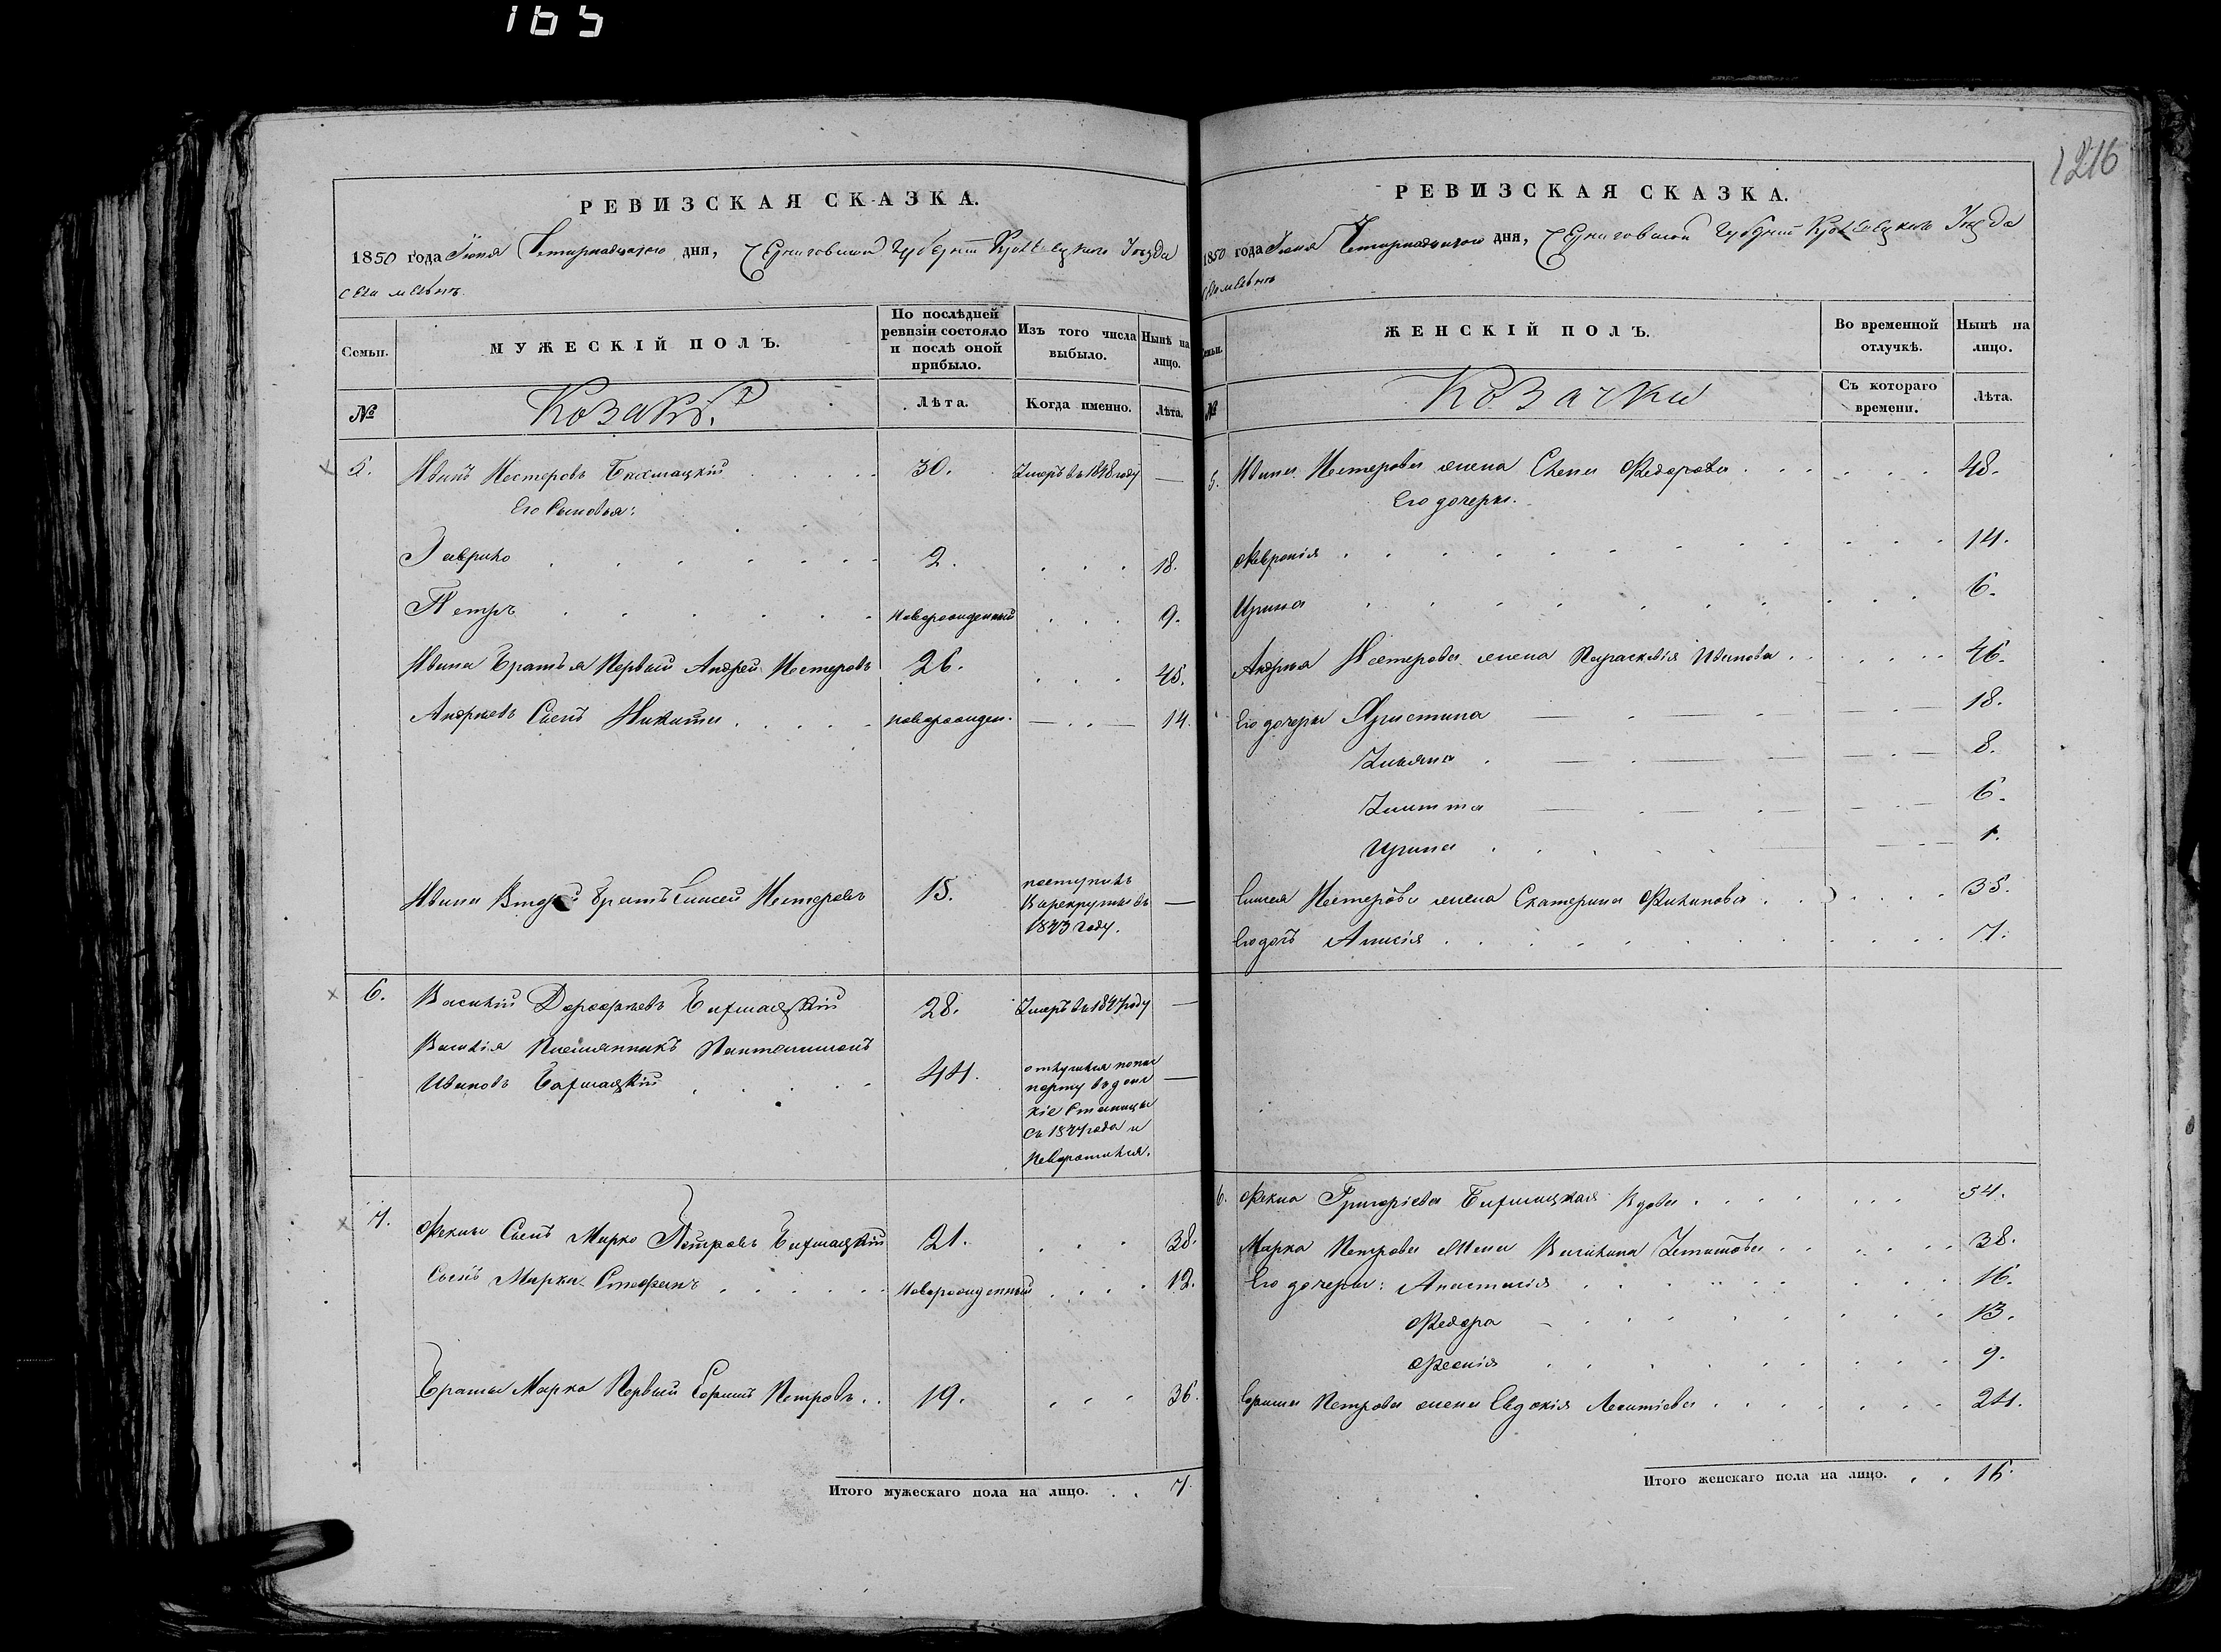 165
1216
РЕВИЗСКАЯ СКАЗКА.
1850 года Іюня Четырнадцатого дня, Черниговской Губерніи Кролевецкого Уѣзда
Семьи.
МУЖЕСКІЙ ПОЛЪ.
По послѣдней ревизіи состояло и послѣ оной прибыло.
Изъ того числа выбыло.
Нынѣ на лицо.
№
Козаки.
Лѣта.
Когда именно.
Лѣта.
5. Иванъ Нестеровъ Бахмацкій 30. Умеръ въ 1848 году —
Его Сыновья:
Гаврило 2. 18.
Петръ новорожденный 9.
Ивана Братья Первый Андрей Нестеровъ 26. 45.
Андреевъ Сынъ Никита новорожден. 14.
Ивана Второй братъ Елисей Нестеровъ 15. поступилъ
в рекруты въ —
1843 году.
6. Василій Дорофѣевъ Бахмацкій 28. Умеръ въ 1847 году —
Василія Племянникъ Пантелимонъ
Ивановъ Бахмацкій 44. отлучился
—
кіе Станицы
съ 1847 года и
7. Феклы Сынъ Марко Петровъ Бахмацкій 21. 38.
Сынъ Марка Стефанъ новорожденный 12.
Братья Марка Первый Ефимъ Петровъ 19. 36.
Итого мужескаго пола на лицо. 7.
РЕВИЗСКАЯ СКАЗКА.
1850 года Іюня Четырнадцатого дня, Черниговской Губерніи Кролевецкого Уѣзда
Семьи.
ЖЕНСКІЙ ПОЛЪ.
Во временной отлучкѣ.
Нынѣ на лицо.
№
Козачки
Съ котораго времени.
Лѣта.
5. Ивана Нестерова жена Елена Федорова 48.
Его дочери.
Февронія 14.
Ирина 6.
Андрея Нестерова жена Параскевія Иванова 46.
Его дочери Христина 18.
Ульяна 8.
6.
Ирина 1.
Елисея Нестерова жена Екатерина Филипова 35.
Его дочь Анисія 7.
6. Фекла Григоріева Бахмацкая Вдова 54.
Марка Петрова жена Василиса 38.
Его дочери: Анастасія 16.
Федора 13.
9.
Ефима Петрова жена Евдокія Леонтіева 24.
Итого женскаго пола на лицо. 16.